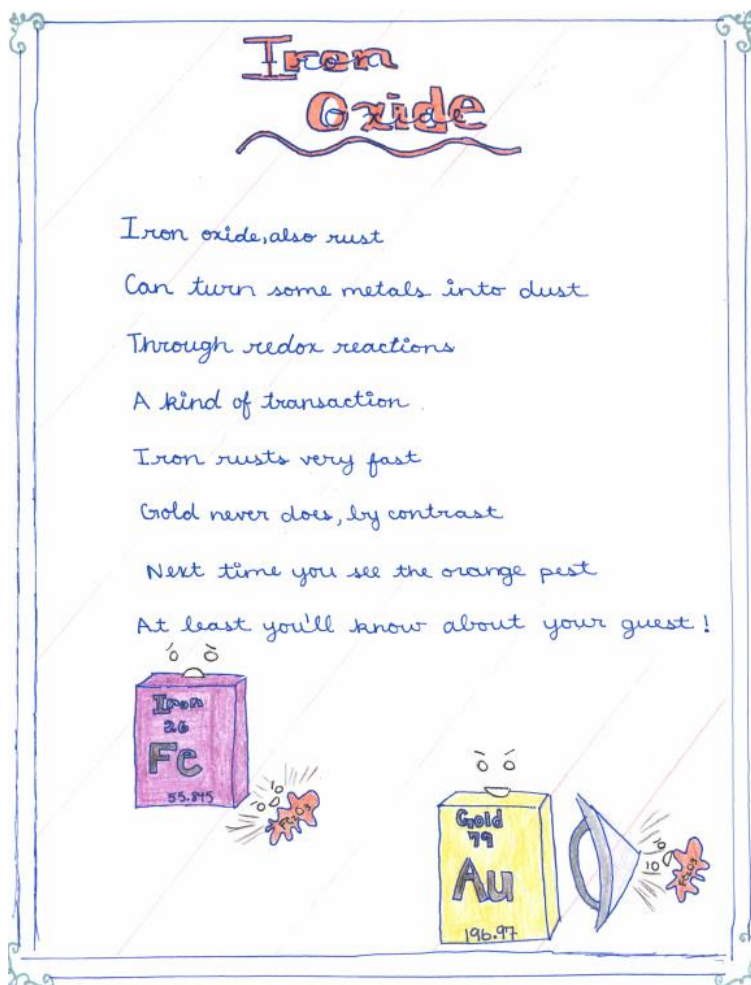 Iron
Oxide
Iron oxide, also rust
Can turn some metals into dust
Through redox reactions
A kind of transaction
Iron rusts very fast
Gold never does, by contrast
Next time you see the orange pest
At least you'll know about your guest!
Iron
26
Fe
55.845
Fe₂O₃
Gold
79
Au
196.97
Fe₂O₃